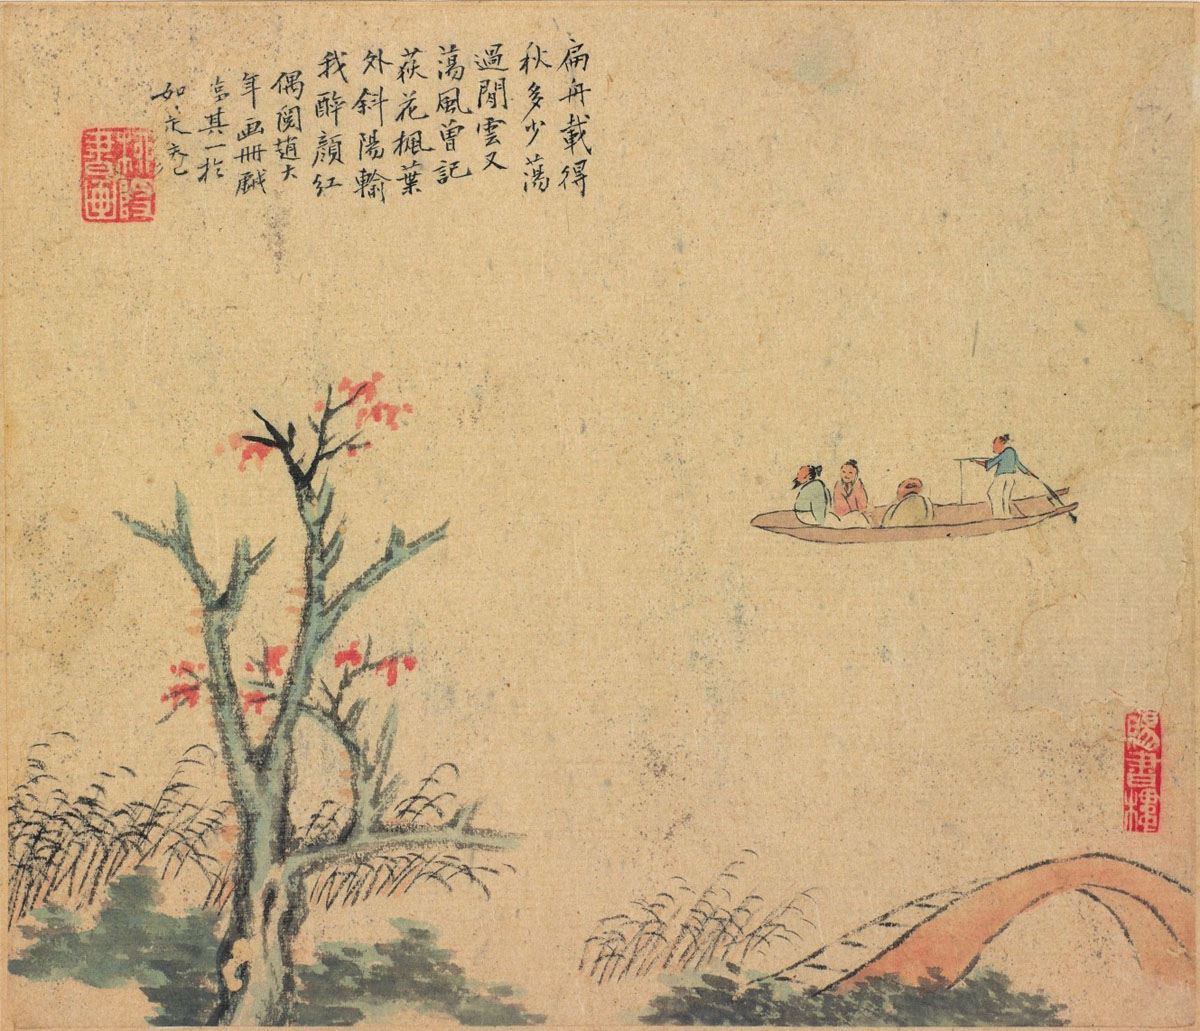 扁舟載得
秋多少蕩
過閒雲又
蕩風曾記
荻花楓葉
外斜陽輸
我醉顏紅
偶閱趙大
年画冊戲
其一於
如
書画
賜書樓